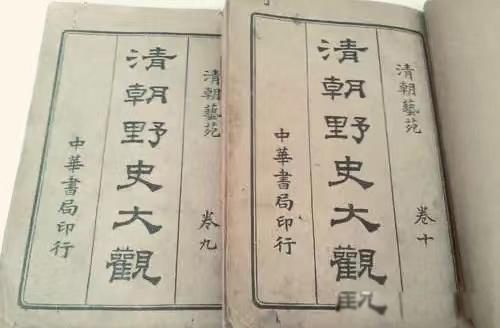 清朝藝苑
卷九
清朝野史大觀
中華書局印行
清朝藝苑
卷十
清朝野史大觀
中華書局印行